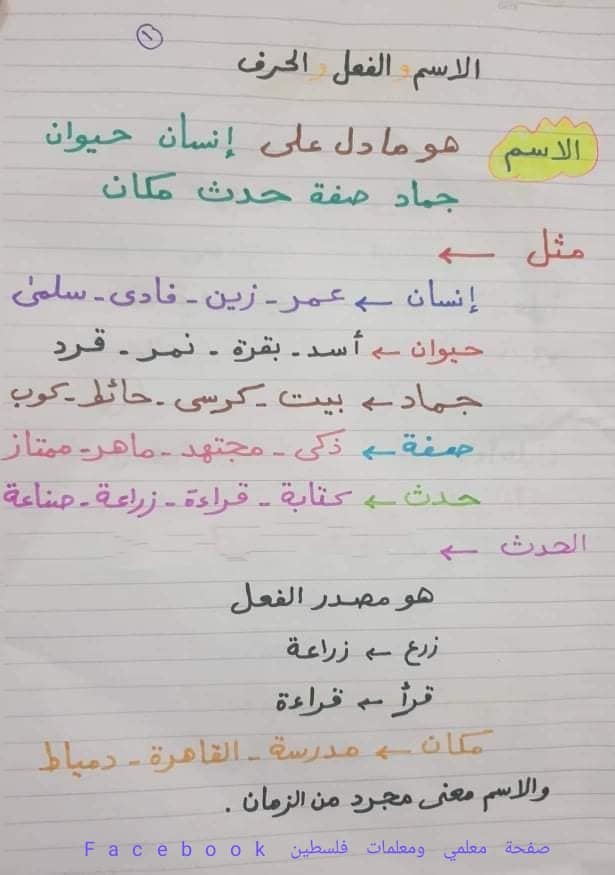 ١
الاسم و الفعل و الحرف
الاسم هو ما دل على إنسان حيوان
جماد صفة حدث مكان
مثل ←
إنسان ← عمر - زين - فادى - سلمى
حيوان ← أسد - بقرة - نمر - قرد
جماد ← بيت - كرسى - حائط - كوب
صفة ← ذكى - مجتهد - ماهر - ممتاز
حدث ← كتابة - قراءة - زراعة - صناعة
الحدث ←
هو مصدر الفعل
زرع ← زراعة
قرأ ← قراءة
مكان ← مدرسة - القاهرة - دمياط
والاسم معنى مجرد من الزمان .
صفحة معلمي ومعلمات فلسطين Facebook